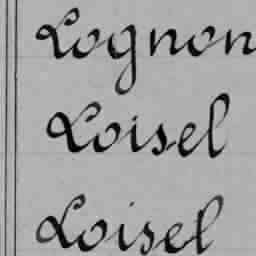 Lognon
Loisel
Loisel